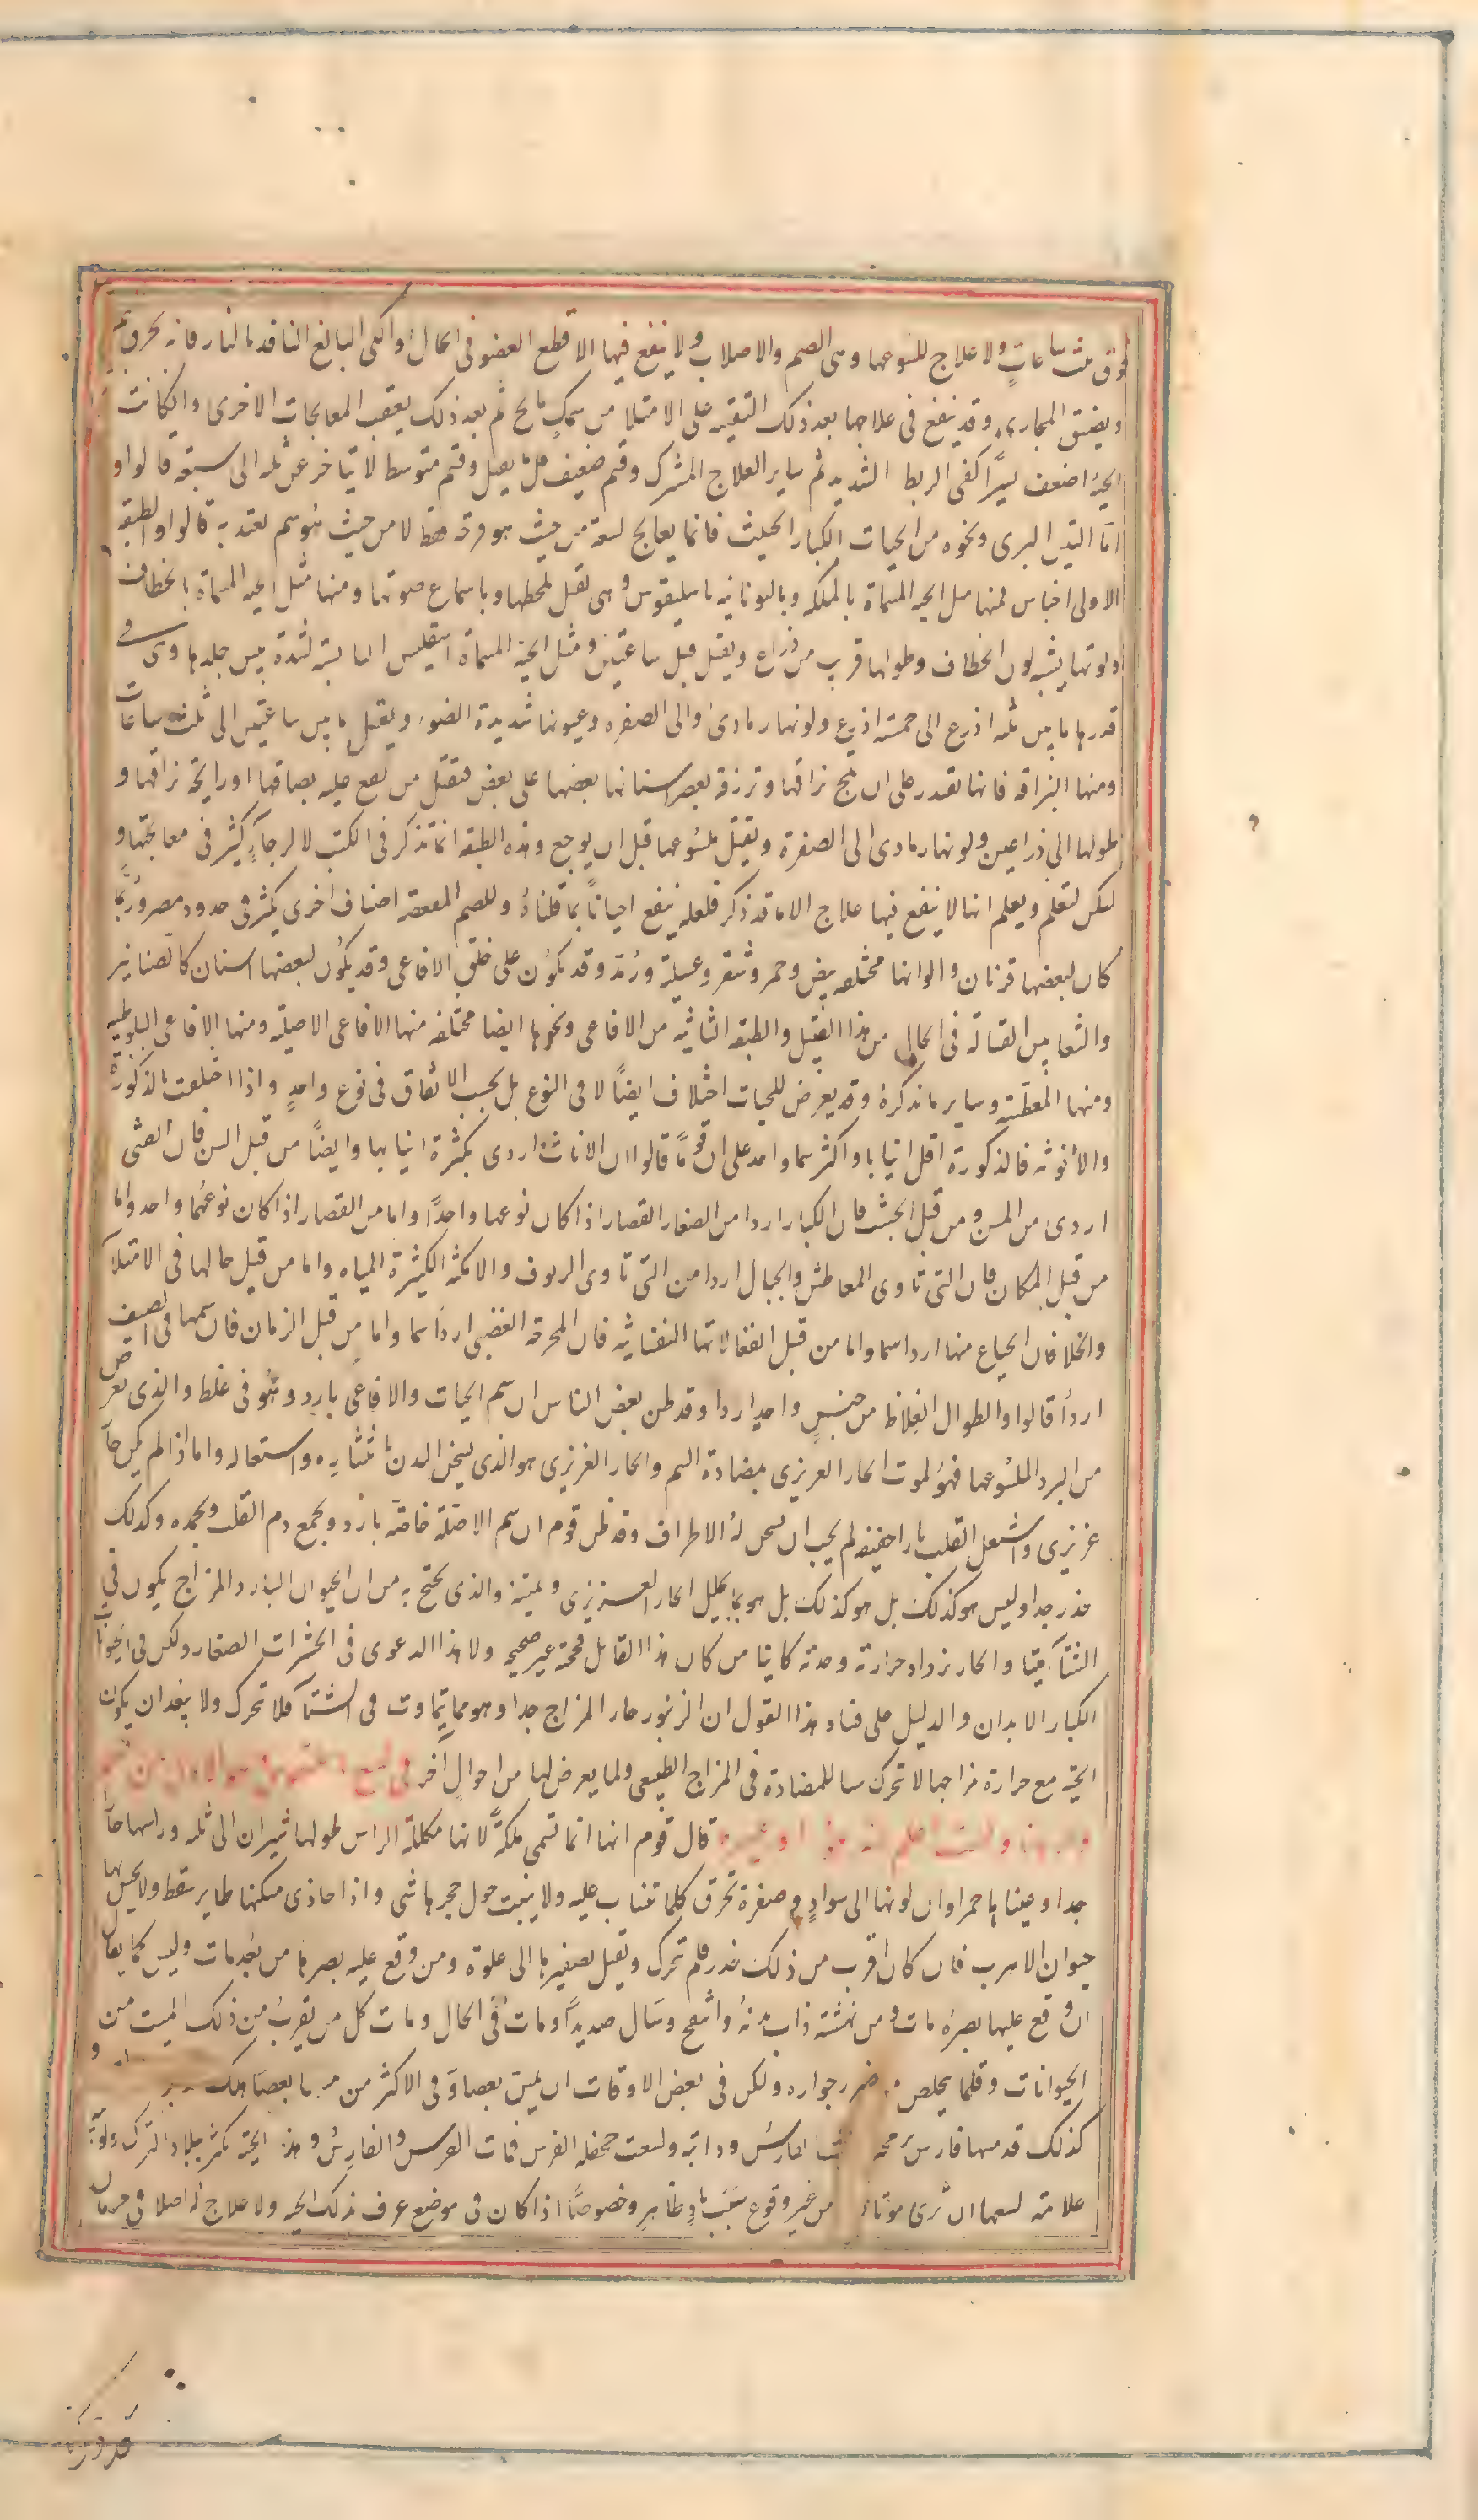 فوق ثلث ساعات ولا علاج للسوعها وهى الصم والاصلاب ولا ينفع فيها الا قطع العضو فى الحال او الكى البالغ النافد بالنار فانه يحرق
ويضيق المجارى وقد ينفع فى علاجها بعد ذلك التقيه على الامتلا من سمك مالح ثم بعد ذلك يعقب المعالجات الاخرى وان كانت
الحية اضعف يسيرًا كفى الربط الشديد ثم ساير العلاج المشترك وقسم ضعيف قل ما يقتل وقسم متوسط لا يتاخر عن ثلثه الى سبعه قالوا و
اما التنين البرى ونحوه من الحيات الكبار الجثث فانما يعالج لسعه من حيث هو قرحه فقط لا من حيث هو سم يعتد به قالوا والطبقه
الاولى اجناس فمنها مثل الحيه المسماة بالملكه وباليونانيه باسليقوس وهى تقتل بلحظها وباسماع صوتها ومنها مثل الحيه المسماة بالخطاف
ولونها يشبه لون الخطاف وطولها قريب من ذراع ويقتل قبل ساعتين ومثل الحية المسماة اسقليس اليابسه لشدة يبس جلدها وهى فى
قدرها ما بين ثلثه اذرع الى خمسة اذرع ولونها رمادى والى الصفره وعيونها شديدة الضوء ويقتل ما بين ساعتين الى ثلث ساعات
ومنها البزاقه فانها تقدر على ان تمج بزاقها وترزقه بعصر اسنانها بعضها على بعض فتقتل من يقع عليه بصاقها او رايحة بزاقها و
طولها الى ذراعين ولونها رمادى الى الصفرة ويقتل ملسوعها قبل ان يوجع وهذه الطبقه انما تذكر فى الكتب لا لرجآءٍ كثير فى معالجتها و
لكن لتعلم ويعلم انها لا ينفع فيها علاج الا ما قد ذكر فلعله ينفع احيانًا بما قلناهُ وللصم المفعصه اصناف اخرى يكثر فى حدود مصر ورُبَّما
كان لبعضها قرنان والوانها مختلفه بيض وحمر وشقر وعسلية ورُبد وقد يكون على خلق الافاعى وقد يكون لبعضها اسنان كالصنانير
والثعابين القتالة فى الحال من هذا القبيل والطبقه الثانيه من الافاعى ونحوها ايضا مختلفه منها الافاعى الاصليه ومنها الافاعى البلوطيه
ومنها المعطشه وساير ما نذكرهُ وقد يعرض للحيات اختلاف ايضًا لا فى النوع بل بحسب الاتفاق فى نوع واحدٍ واذا اختلفت بالذكورة
والأنوثه فالذكورة اقل انيابا واكثر سما واحد على ان قومًا قالوا ان الاناث اردى بكثرة انيابها وايضًا من قبل السن فان الفتى
اردى من المسن ومن قبل الجثث فان الكبار اردا من الصغار القصار اذا كان نوعها واحدًا واما من القصار اذا كان نوعهُما واحد واما
من قبل المكان فان التى تاوى المعاطش والجبال اردا من التى تاوى الريوف والامكنه الكثيرة المياه واما من قبل حالها فى الامتلآ
والخلا فان الجياع منها اردا سما واما من قبل انفعالاتها النفسانيه فان المحرقه الغضبى اردأ سما واما من قبل الزمان فان سمها فى الصيف
اردأ قالوا والطوال الغلاظ من جنسٍ واحد اردا وقد ظن بعض الناس ان سم الحيات والافاعى بارد وهو فى غلط والذى يعرض
من البرد الملسوعها فهوُ لموت الحار الغريزى بمضادة السم والحار الغريزى هو الذى يسخن البدن بانتشاره واستعماله واما اذا لم يكن حار
غريزى واشتعل القلب نارا حقيقه لم يجب ان يسخن لهُ الاطراف وقد ظن قوم ان سم الاصَلة خاصَّه بارد ويجمع دم القلب ويجمده وكذلك
خدر جدا وليس هو كذلك بل هو كذلك بل هو بما يحلل الحار الغريزى ويميته والذى يحتج به من ان الحيوان البارد المزاج يكون فى
الشتآ ميتا والحار يزداد حرارته وحدته كاينا من كان هذا القايل فحجة غير صحيحه ولا هذا الدعوى فى الحشرات الصغار ولكن فى الحيوانات
الكبار الابدان والدليل على فساد هذا القول ان الزنبور حار المزاج جدا وهو مما يتماوت فى الشتآ فلا تحرك ولا يبعد ان يكون
الحية مع حرارة مزاجها لا تحرك سا للمضادة فى المزاج الطبيعى ولما يعرض لها من احوال اخر
قال قوم انها انما تسمى ملكةً لانها مكللة الراس طولها شبران الى ثلثه وراسها حاد
جدا وعيناها حمراوان لونها الى سوادٍ وصفرة تحرق كلما تنساب عليه ولا ينبت حول جحرها شى واذا حاذى مسكنها طاير سقط ولا يحس بها
حيوان الا هرب فان كان اقرب من ذلك خدر فلم تحرك وتقتل بصفيرها الى غلوة ومن وقع عليه بصرها من بُعد مات وليس كما يقال
ان وقع عليها بصرهُ مات ومن نهشته ذاب بدنهُ وانتفخ وسال صديدًا ومات فى الحال ومات كل من يقربُ من ذلك الميت من
الحيوانات وقلما يخلص من ضرر جواره ولكن فى بعض الاوقات ان يمس بعصا وفى الاكثر من مسها بعصا هلك
كذلك قد مسها فارس برمحه فمات الفارس ودابته ولسعت جحفله الفرس فمات الفرس والفارسُ وهذه الحية تكثر ببلاد الترك ولوبيه
علامة لسعها ان ترى موتا من غير وقوع سبب بادٍ ظاهر وخصوصًا اذا كان فى موضع عرف بذلك الحيه ولا علاج له اصلا